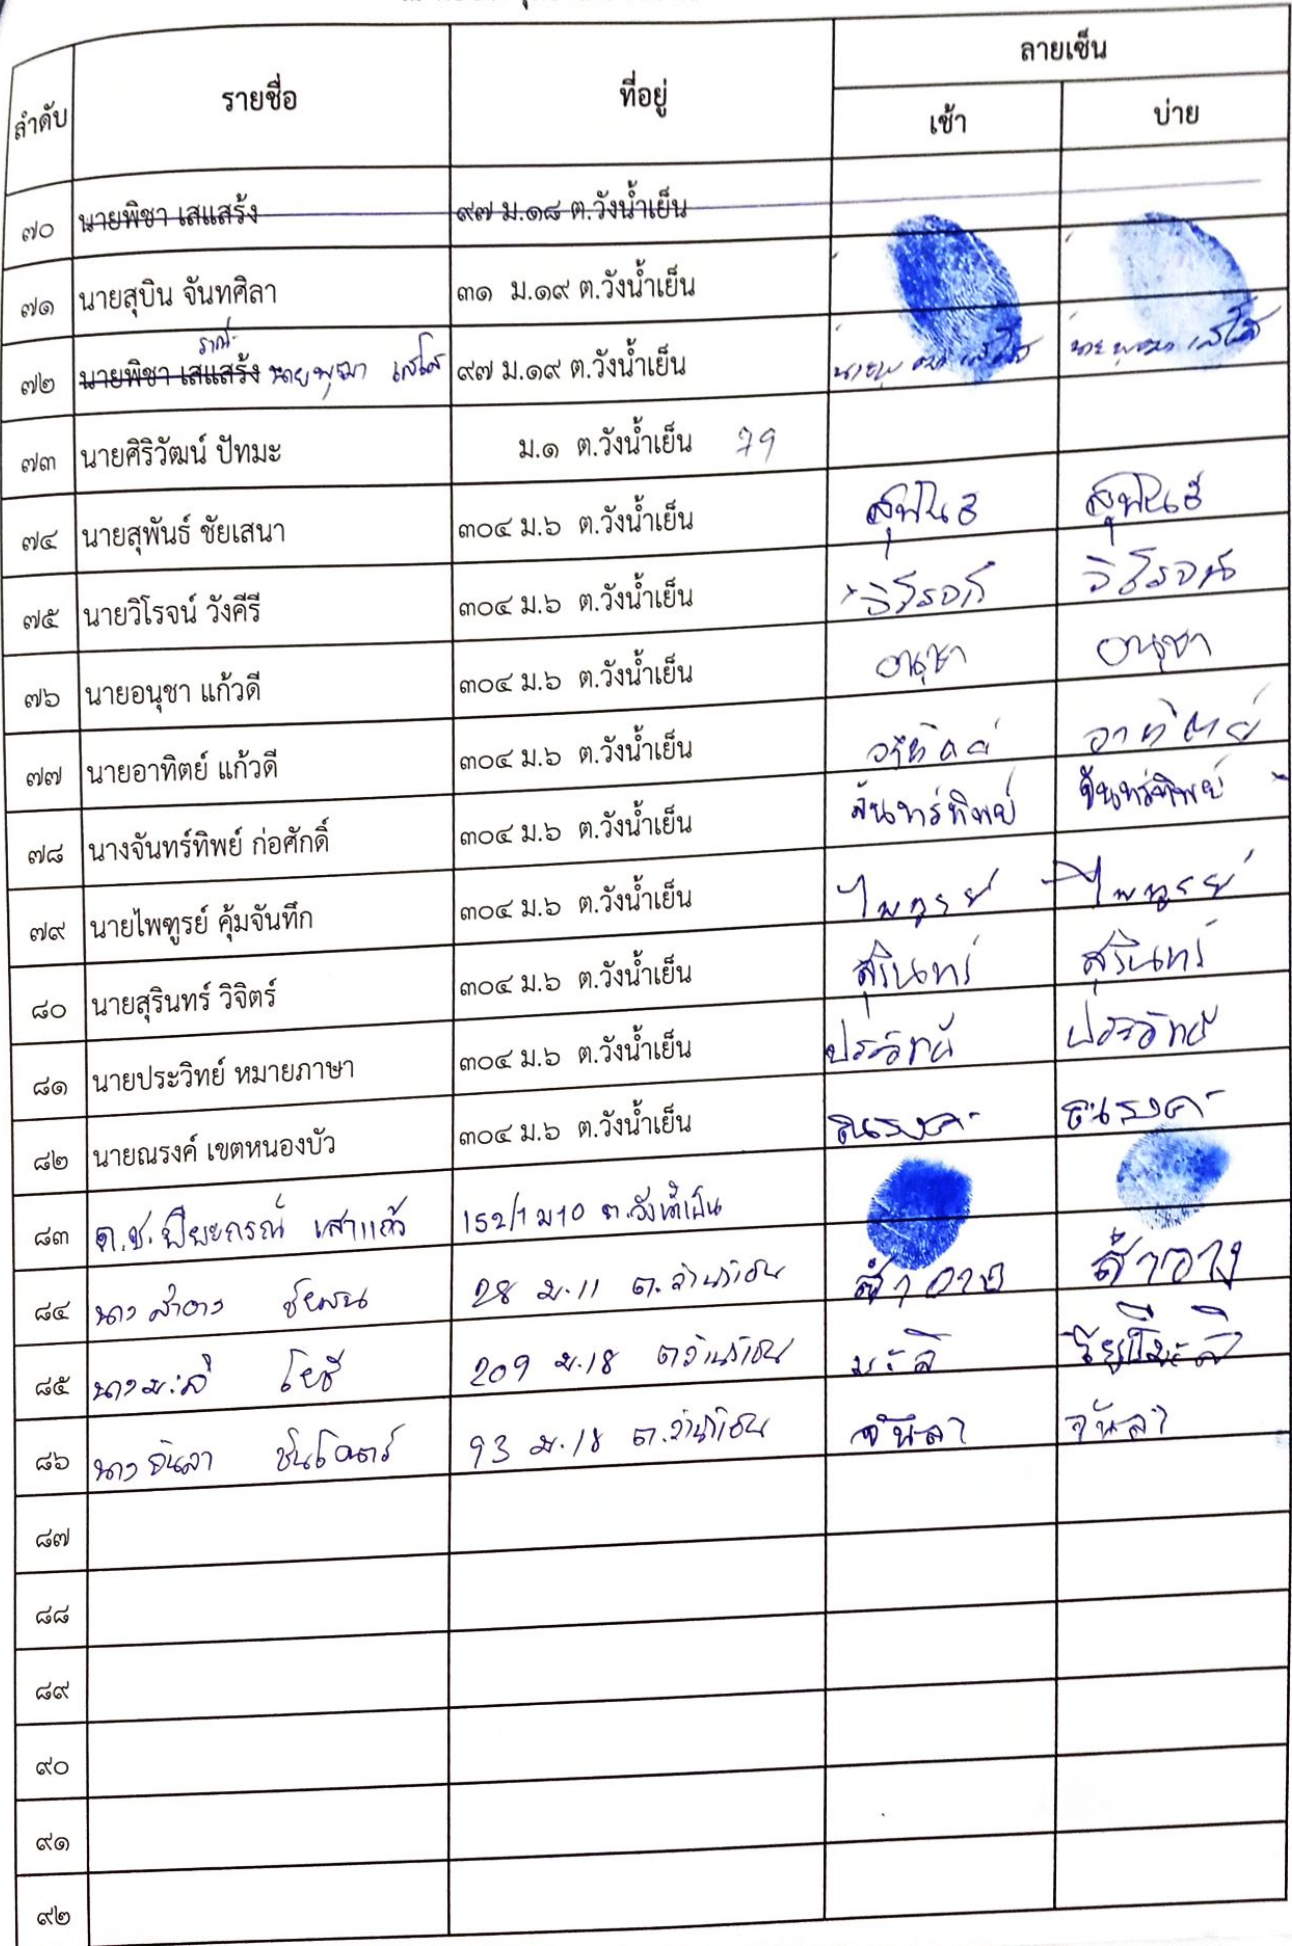 ลายเซ็น
ลำดับ รายชื่อ ที่อยู่ เช้า บ่าย
๗๐ นายพิชา เสแสร้ง ๙๗ ม.๑๘ ต.วังน้ำเย็น
๗๑ นายสุบิน จันทศิลา ๓๑ ม.๑๙ ต.วังน้ำเย็น
๗๒ นายพิชา เสแสร้ง นาย ๙๗ ม.๑๙ ต.วังน้ำเย็น
๗๓ นายศิริวัฒน์ ปัทมะ ม.๑ ต.วังน้ำเย็น 79
๗๔ นายสุพันธ์ ชัยเสนา ๓๐๔ ม.๖ ต.วังน้ำเย็น สุพันธ์ สุพันธ์
๗๕ นายวิโรจน์ วังคีรี ๓๐๔ ม.๖ ต.วังน้ำเย็น วิโรจน์ วิโรจน์
๗๖ นายอนุชา แก้วดี ๓๐๔ ม.๖ ต.วังน้ำเย็น อนุชา อนุชา
๗๗ นายอาทิตย์ แก้วดี ๓๐๔ ม.๖ ต.วังน้ำเย็น อาทิตย์ อาทิตย์
๗๘ นางจันทร์ทิพย์ ก่อศักดิ์ ๓๐๔ ม.๖ ต.วังน้ำเย็น จันทร์ทิพย์ จันทร์ทิพย์
๗๙ นายไพฑูรย์ คุ้มจันทึก ๓๐๔ ม.๖ ต.วังน้ำเย็น ไพฑูรย์ ไพฑูรย์
๘๐ นายสุรินทร์ วิจิตร์ ๓๐๔ ม.๖ ต.วังน้ำเย็น สุรินทร์ สุรินทร์
๘๑ นายประวิทย์ หมายภาษา ๓๐๔ ม.๖ ต.วังน้ำเย็น ประวิทย์ ประวิทย์
๘๒ นายณรงค์ เขตหนองบัว ๓๐๔ ม.๖ ต.วังน้ำเย็น ณรงค์ ณรงค์
๘๓ ด.ช. ปิยะกรณ์ เสาแก้ว 152/1 ม 10 ต.วังน้ำเย็น
๘๔ นาง สำอาง 28 ม.11 ต.วังน้ำเย็น สำอาง สำอาง
๘๕ นาง มะลิ โยธี 209 ม.18 ต.วังน้ำเย็น มะลิ มะลิ
๘๖ นาง จันลา 93 ม.18 ต.วังน้ำเย็น จันลา จันลา
๘๗
๘๘
๘๙
๙๐
๙๑
๙๒